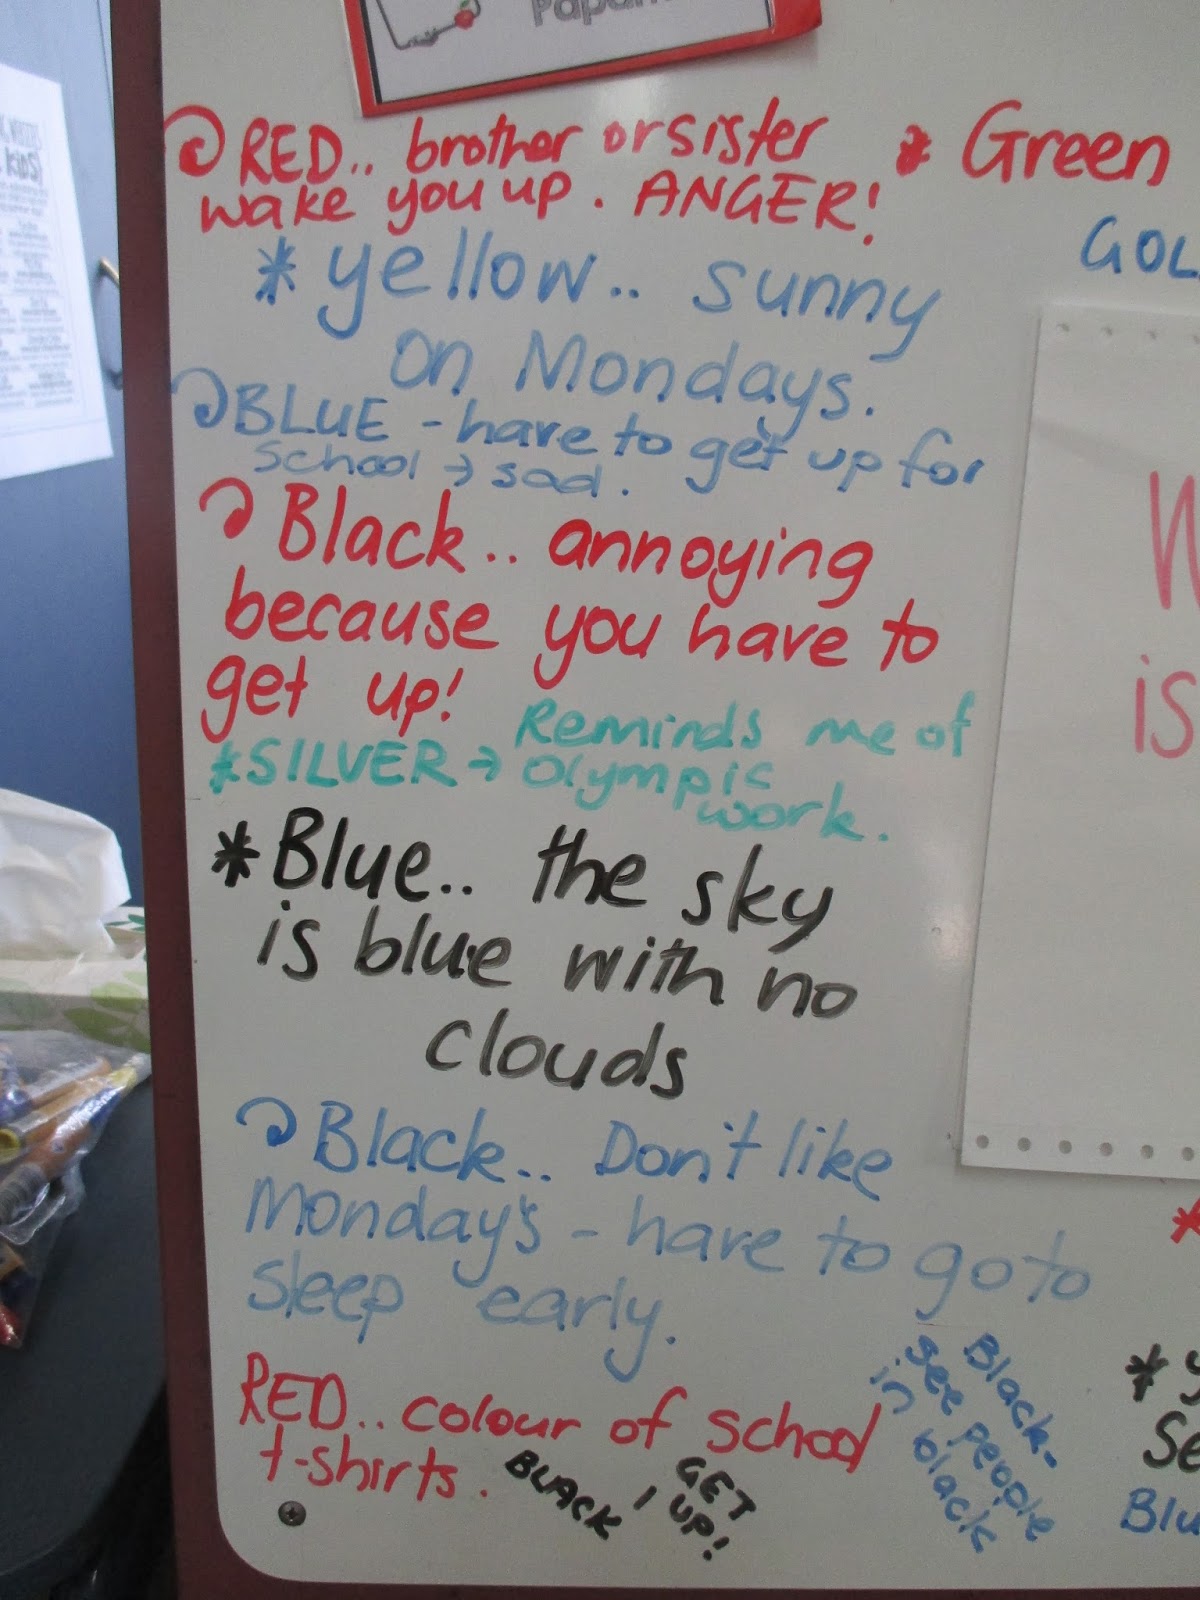 RED.. brother or sister
wake you up. ANGER!
* Green
* yellow.. sunny
on Mondays.
BLUE - have to get up for
school → sad.
Black.. annoying
because you have to
get up!
*SILVER → Reminds me of
Olympic
work.
*Blue.. the sky
is blue with no
clouds
Black.. Don't like
Monday's - have to go to
sleep early.
RED.. colour of school
t-shirts.
BLACK
GET
UP!
Black-
see people
in black
is
KIDS